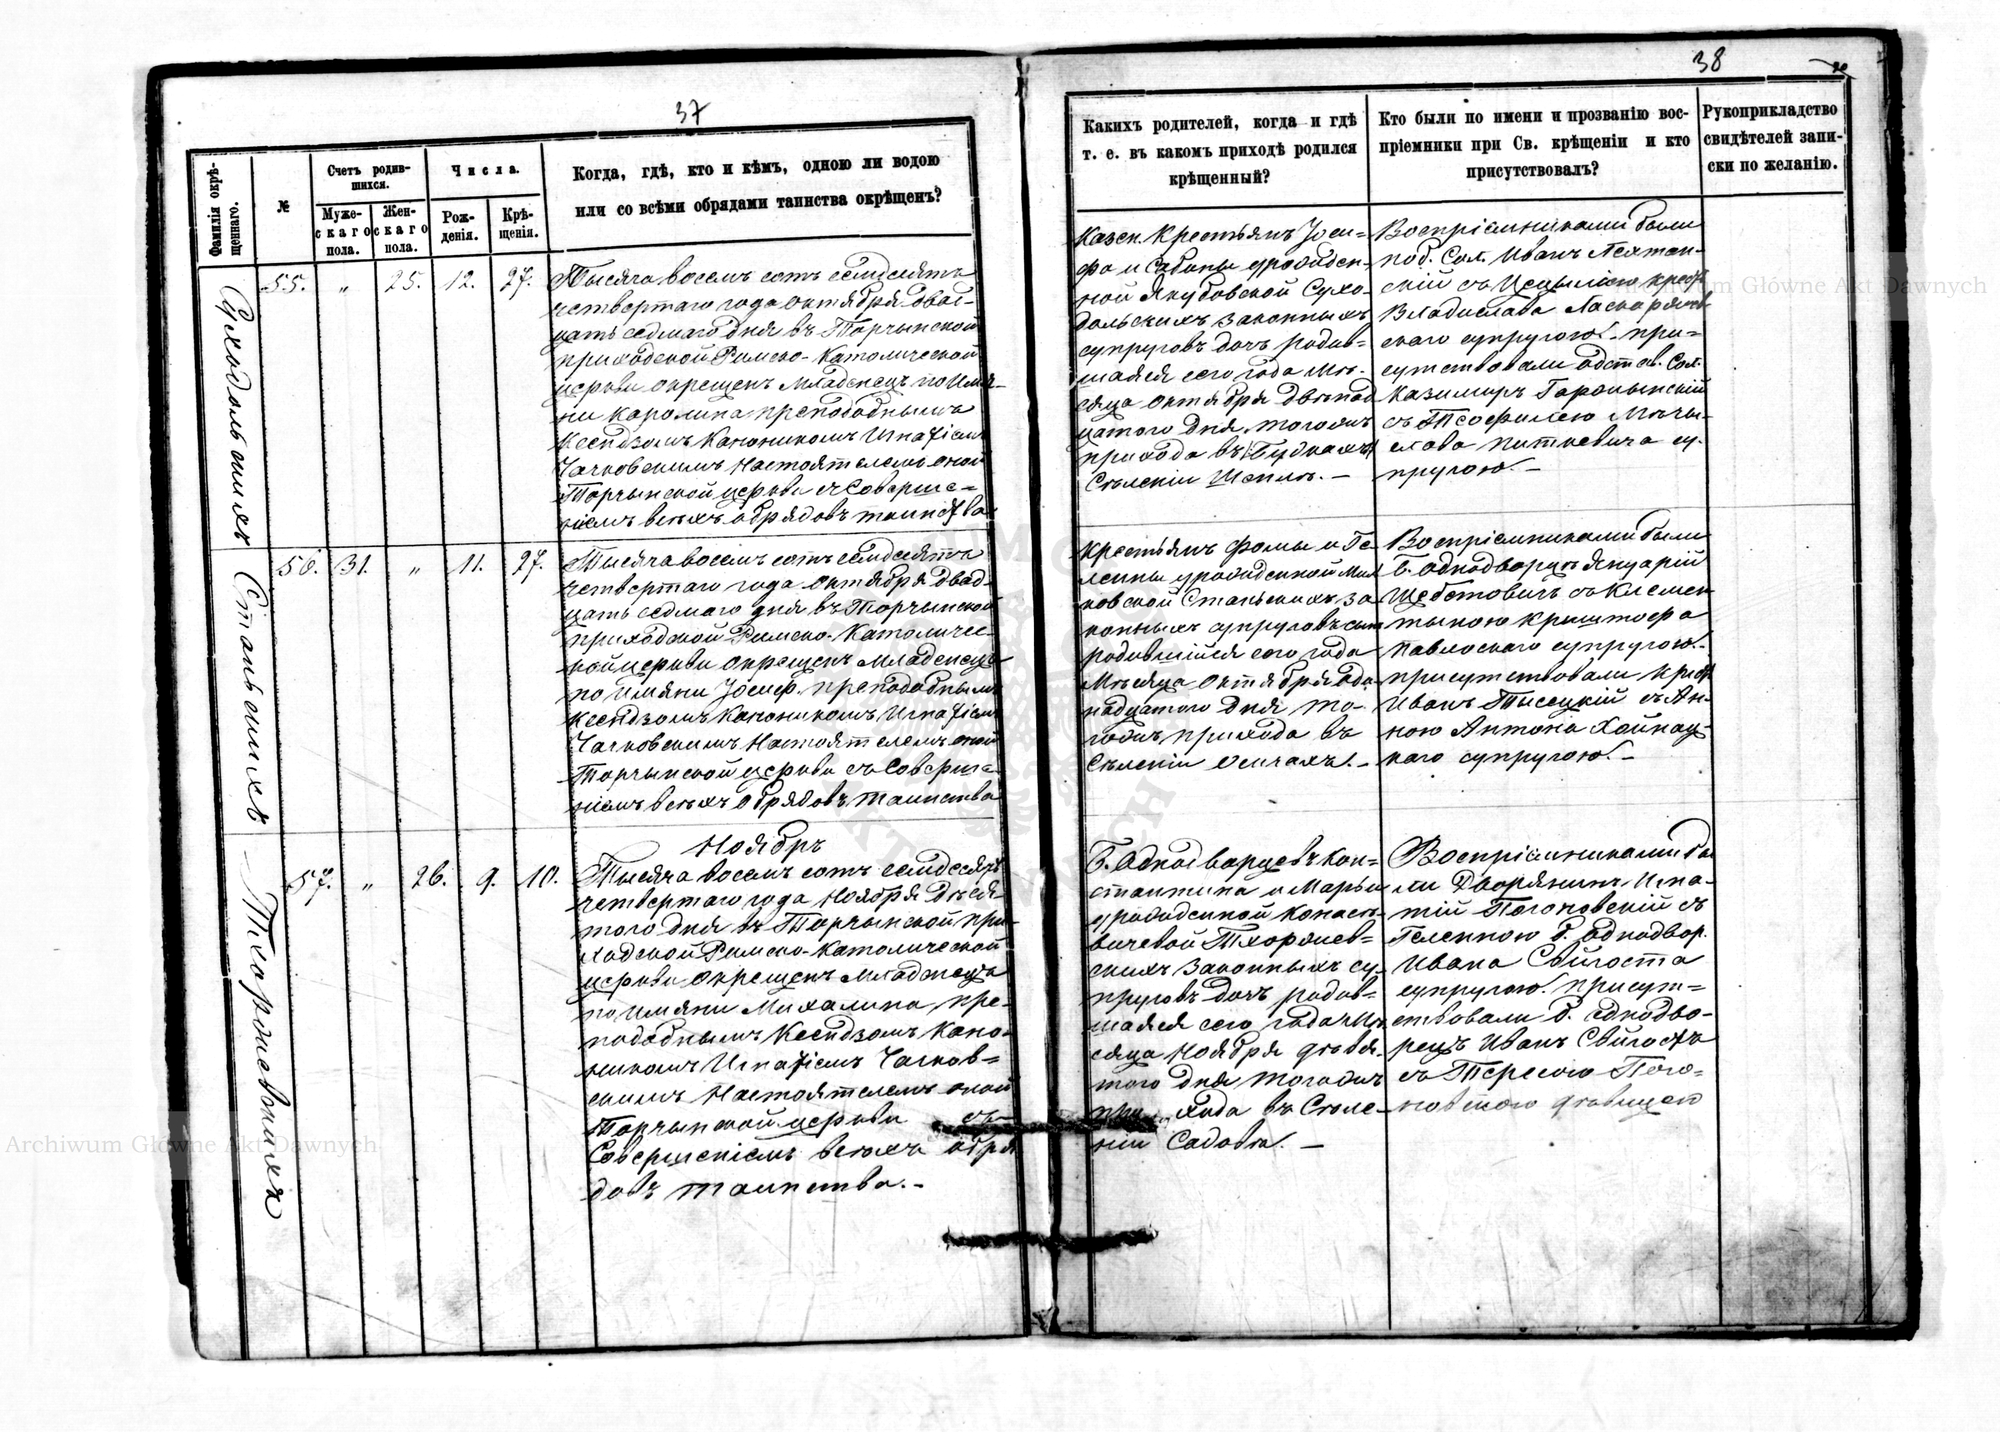 37
Фамилія окрѣ-
щеннаго.
№
Счетъ родив-
шихся.
Муже-
скаго
пола.
Жен-
скаго
пола.
Числа.
Рож-
денія.
Крѣ-
щенія.
Когда, гдѣ, кто и кѣмъ, одною ли водою
или со всѣми обрядами таинства окрѣщенъ?
Суходольскихъ
55. „ 25. 12. 27.
Тысяча восемъ сотъ семдесятъ
четвертаго года Октября двад-
цать седмаго дня въ Торчынской
приходской Римско-Католической
церкви окрещенъ Младенецъ по Имя-
ни Каролина преподобнымъ
Ксендзомъ Каноникомъ Игнатіемъ
Чачковскимъ Настоятелемъ оной
Торчынской церкви съ Соверше-
ніемъ всѣхъ обрядовъ таинства
Стальскихъ
56. 31. „ 11. 27.
Тысяча восемъ сотъ семдесятъ
четвертаго года Октября двад-
цать седмаго дня въ Торчынской
приходской Римско-Католичес-
кой церкви окрещенъ Младенецъ
по Имяни Іосифъ преподобнымъ
Ксендзомъ Каноникомъ Игнатіемъ
Чачковскимъ Настоятелемъ оной
Торчынской церкви съ Соверше-
ніемъ всѣхъ обрядовъ таинства
Ноябръ
Тхоржевскихъ
57. „ 26. 9. 10.
Тысяча восемъ сотъ семдесятъ
четвертаго года Ноября Деся-
того дня въ Торчынской при-
ходской Римско-Католической
церкви окрещенъ Младенецъ
по Имяни Михалина, пре-
подобнымъ Ксендзомъ Кано-
никомъ Игнатіемъ Чачков-
скимъ Настоятелемъ оной
Торчынской церкви съ
Совершеніемъ всѣхъ обря
довъ таинства.-
38
Какихъ родителей, когда и гдѣ
т. е. въ какомъ приходѣ родился
крѣщенный?
Кто были по имени и прозванію вос-
пріемники при Св. крѣщеніи и кто
присутствовалъ?
Рукоприкладство
свидѣтелей запи-
ски по желанію.
Казен. Крестьянъ Іоси-
фа и Сабины урожден-
ной Якубовской Сухо-
дольскихъ законныхъ
супруговъ дочь родив-
шаяся сего года Мѣ-
сяца Октября двѣнад
цатого дня тогожъ
прихода въ Будкахъ
Селеніи
Воспріемниками были
под. Сол. Иванъ
скій съ Цецыліею крест
Владислава
скаго супругою. при-
сутствовали отстав. Сол.
Казимиръ
съ Теофилею Мечы-
слава Питкевича су-
пругою.-
Крестьянъ Фомы и Ге-
лены урожденной
ковской Стальскихъ за
конныхъ супруговъ сынъ
родившійся сего года
Мѣсяца Октября оди
надцатого дня то-
гожъ прихода въ
Селеніи Усичахъ.-
Воспріемниками были
б. Однодворецъ Януарій
съ Клемен
тыною Крыштофа
Павлоскаго супругою.-
присутствовали крест
Иванъ Тысецкій съ Ан-
ною Антона Хойнац-
каго супругою.-
б. Однодворцевъ Кон-
стантина и Марьи
урожденной
вичевой Тхоржев-
скихъ законныхъ су-
пруговъ дочь родив-
шаяся сего года Мѣ
сяца Ноября девя-
того дня тогожъ
прихода въ Селе-
ніи Садовѣ.-
Воспріемниками бы
ли Дворянинъ Игна-
тій Погоновскій съ
Геленною б. однодвор.
Ивана Свйгоста
супругою. присут-
ствовали б. однодво-
рецъ Иванъ Свйгостъ
съ Тересою Пого-
новскою дѣвицею
Archiwum Główne Akt Dawnych